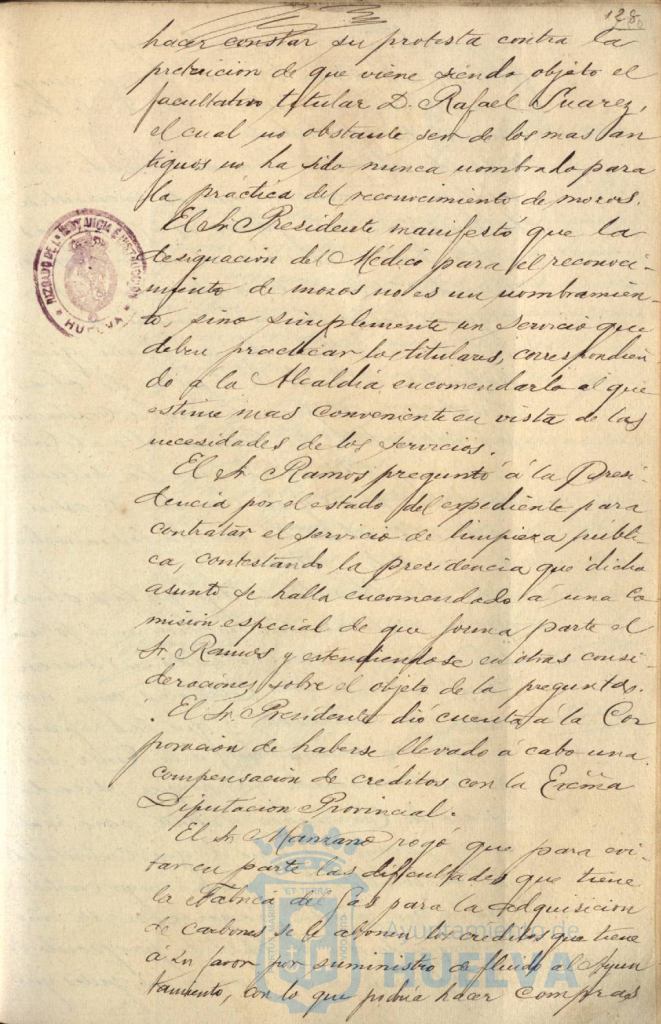 128
hacer constar su protesta contra la
pretericion de que viene siendo objeto el
facultativo titular D. Rafael Suarez,
el cual no obstante ser de los mas an
tiguos no ha sido nunca nombrado para
la práctica del reconocimiento de mozos.
El Sr. Presidente manifesto que la
designacion del Médico para el reconoci-
miento de mozos no es un nombramien-
to, sino simplemente un servicio que
deben practicar los titulares, correspondien
do á la Alcaldia encomendarlo al que
estime mas conveniente en vista de las
necesidades de los servicios.
El Sr. Ramos preguntó á la Presi-
dencia por el estado del expediente para
contratar el servicio de limpieza públi-
ca, contestando la presidencia que dicho
asunto se halla encomendado á una Co
misión especial de que forma parte el
Sr. Ramos y estendiendose en otras consi-
deraciones sobre el objeto de la pregunta.
El Sr. Presidente dió cuenta á la Cor
poracion de haberse llevado á cabo una
compensación de créditos con la Excma
Diputacion Provincial.
El Sr. Manzano rogó que para evi-
tar en parte las dificultades que tiene
la Fabrica de Gas para la adquisicion
de carbones se le abonen los créditos que tiene
á su favor por suministro de fluido al Ayun
tamiento, con lo que podria hacer compras
HUELVA
Ayuntamiento de
HUELVA